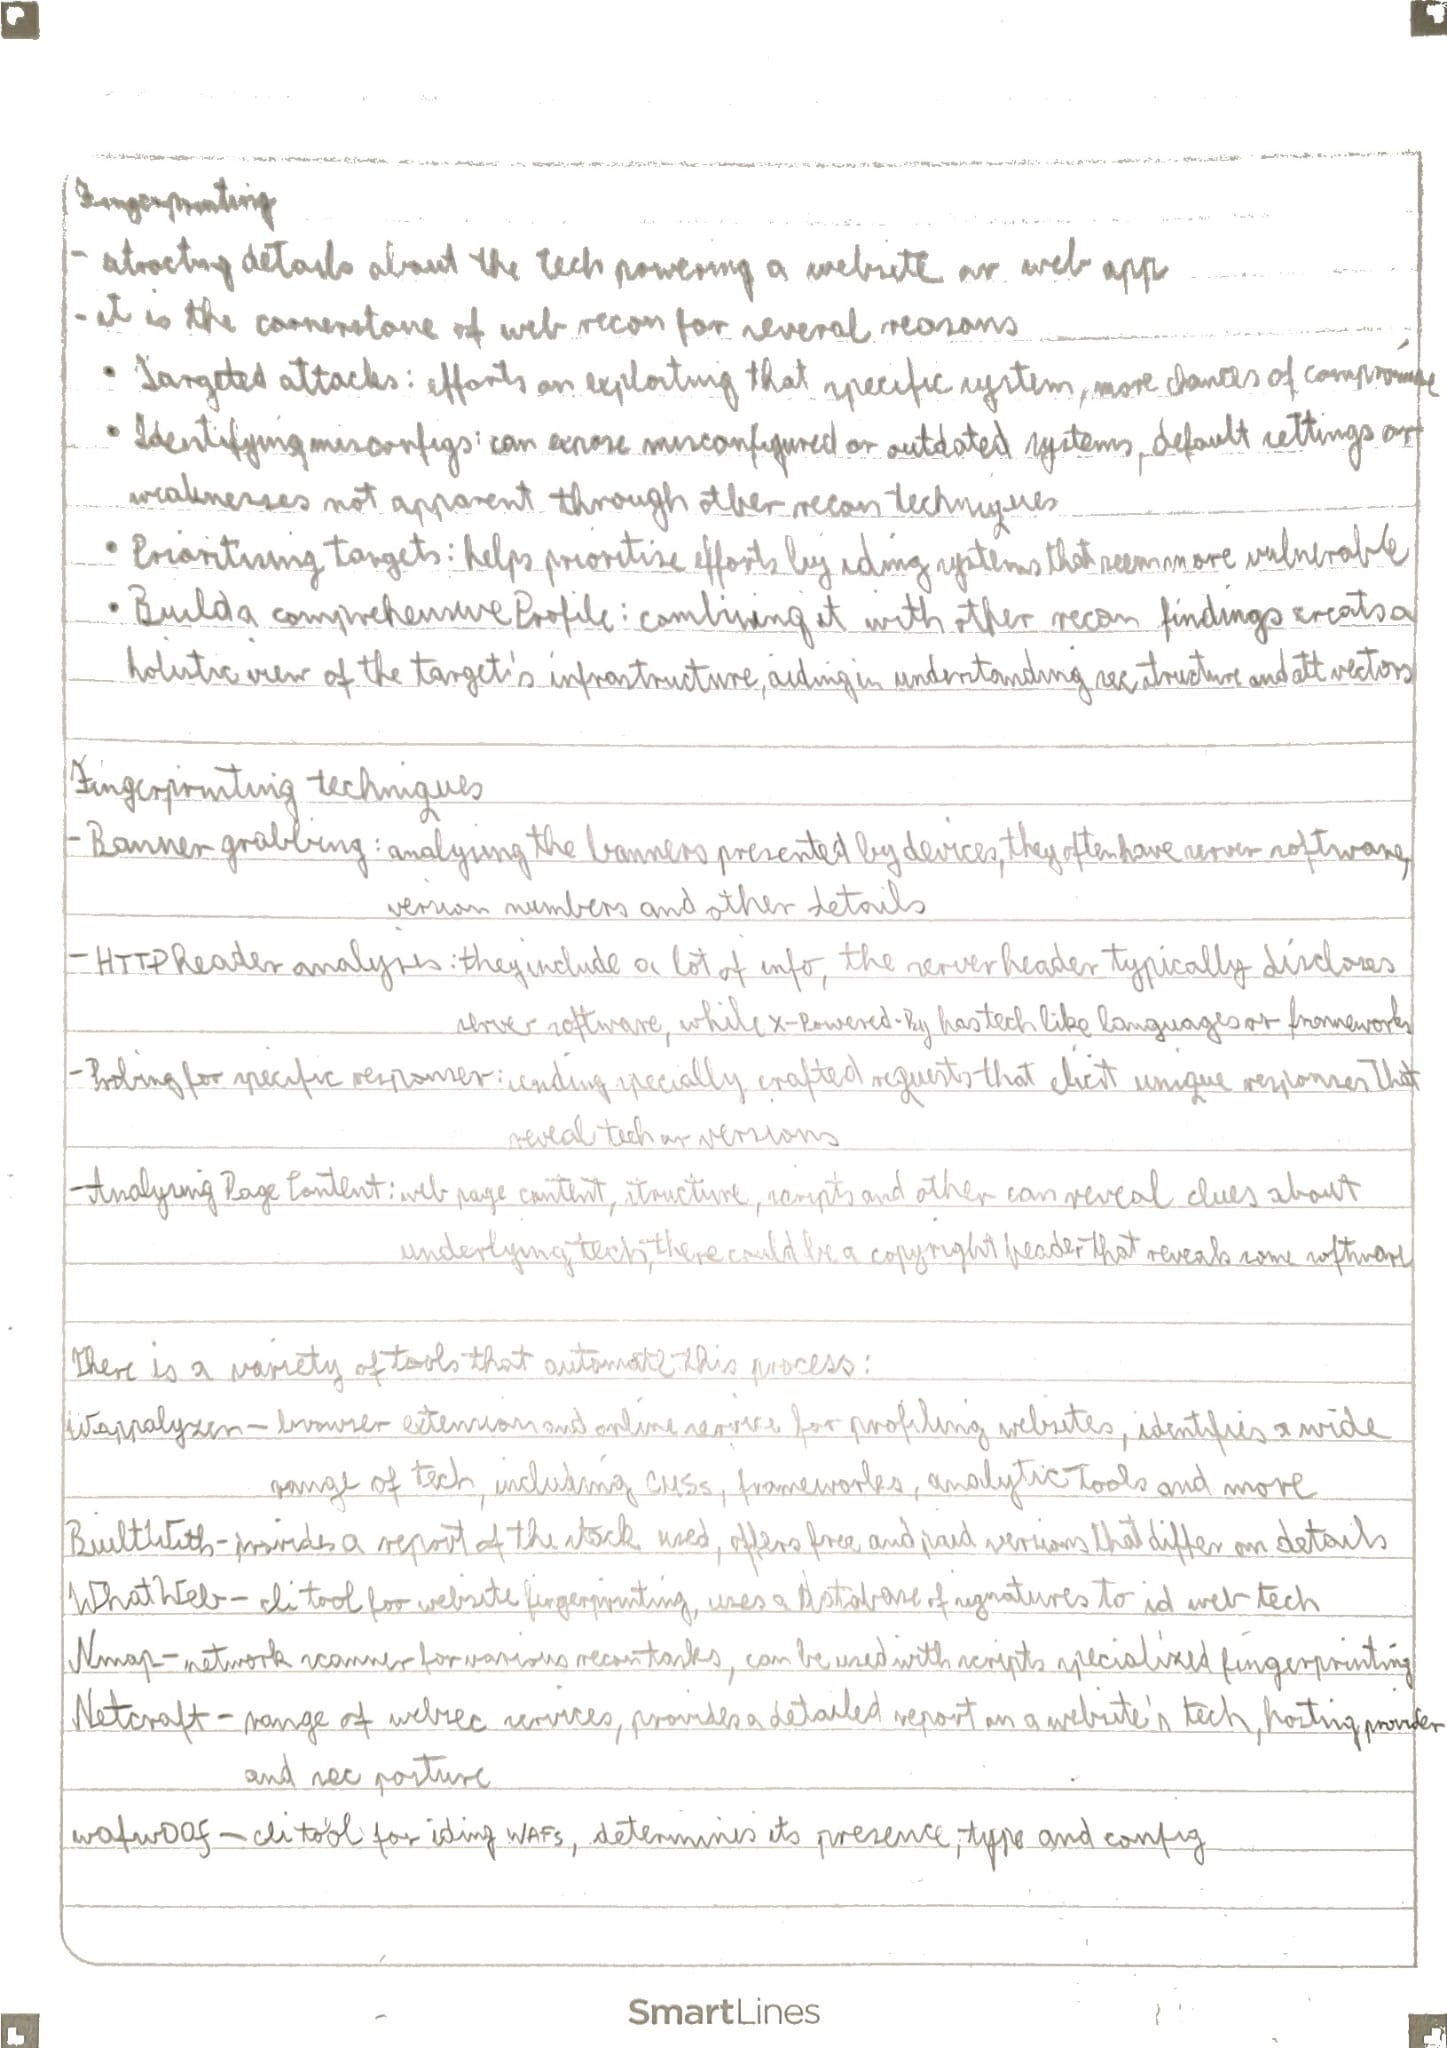 Fingerprinting
- atracting details about the tech powering a website or web app
- it is the cornerstone of web recon for several reasons
• Targeted attacks: efforts on exploiting that specific system, more chances of compromise
• Identifying misconfigs: can expose misconfigured or outdated systems, default settings or
weaknesses not apparent through other recon techniques
• Prioritising targets: helps prioritise efforts by iding systems that seem more vulnerable
• Build a comprehensive Profile: combining it with other recon findings creats a
holistic view of the target's infrastructure, aiding in understanding sec structure and att vectors
Fingerprinting techniques
- Banner grabbing: analysing the banners presented by devices, they often have server software,
version numbers and other details
- HTTP header analysis: they include a lot of info, the server header typically discloses
server software, while X-Powered-By has tech like languages or frameworks
- Probing for specific responses: sending specially crafted requests that elicit unique responses that
reveal tech or versions
- Analysing Page Content: web page content, structure, scripts and other can reveal clues about
underlying tech, there could be a copyright header that reveals some software
There is a variety of tools that automate this process:
Wappalyzer - browser extension and online service for profiling websites, identifies a wide
range of tech, including CMSs, frameworks, analytic tools and more
BuiltWith - provides a report of the stack used, offers free and paid versions that differ on details
WhatWeb - cli tool for website fingerprinting, uses a database of signatures to id web tech
Nmap - network scanner for various recon tasks, can be used with scripts specialized fingerprinting
Netcraft - range of websec services, provides a detailed report on a website's tech, hosting provider
and sec posture
wafw00f - cli tool for iding WAFs, determines its presence, type and config
SmartLines